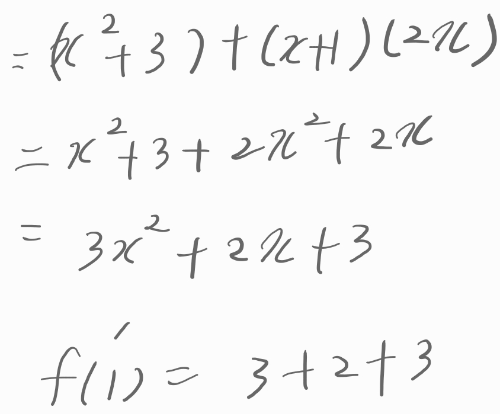 = (x²+3)+(x+1)(2x)
= x²+3+2x²+2x
= 3x²+2x+3
f′(1)= 3+2+3